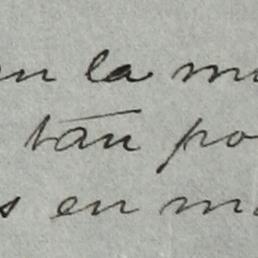 en la mu
tan po
s en m